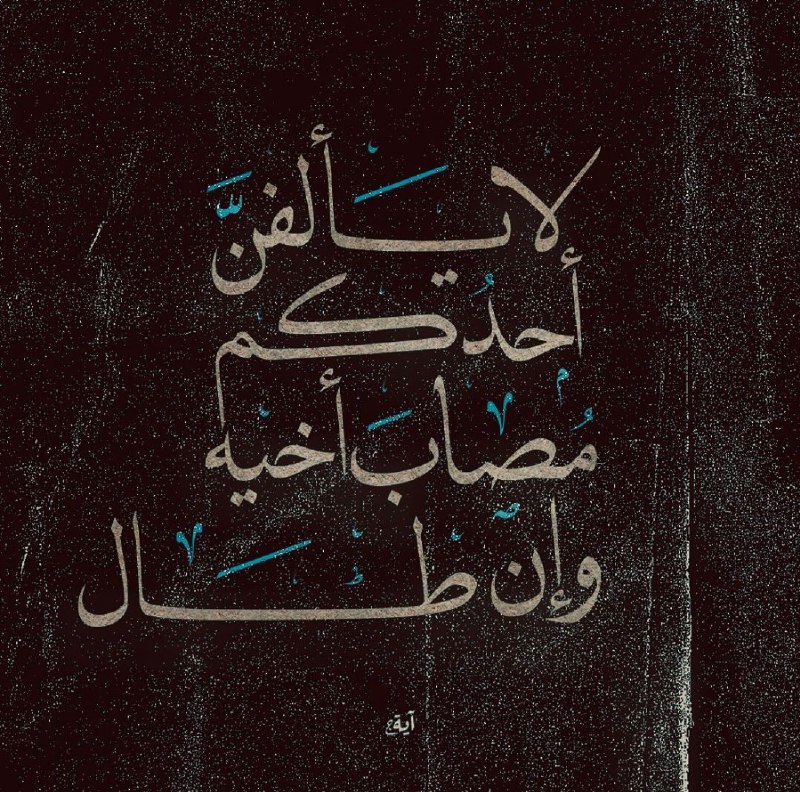 لا يألفنَّ
أحدُكم
مُصابَ أخيه
وإن طال
آية